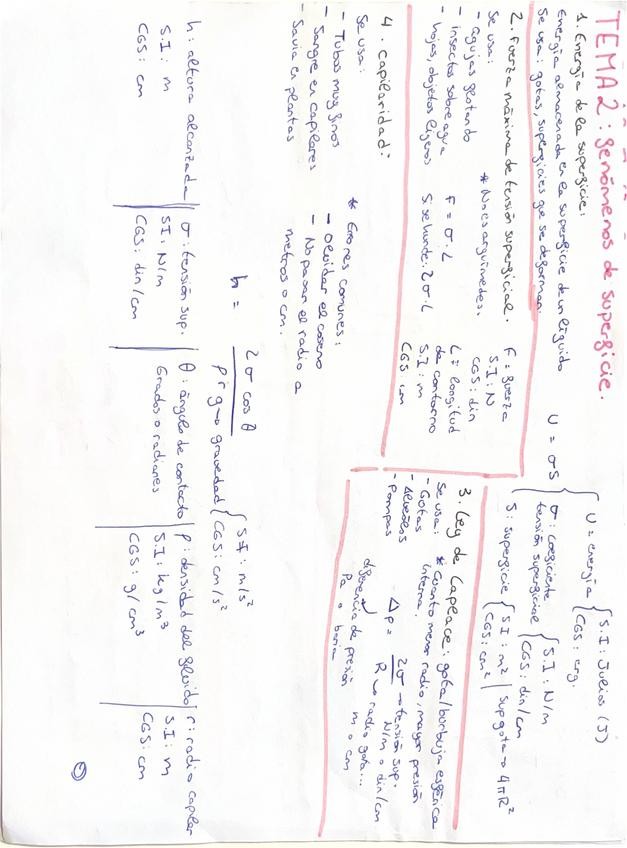 TEMA 2: fenómenos de superficie.
1. Energía de la superficie:
Energía almacenada en la superficie de un líquido
Se usa: gotas, superficies que se deforman.
U = σS
U = energía { S.I: Julios (J)
CGS: erg.
σ: coeficiente tensión superficial { S.I: N/m
CGS: din/cm
S: superficie { S.I: m² | sup gota → 4πR²
CGS: cm²
2. Fuerza máxima de tensión superficial.
Se usa:
- Agujas flotando
- insectos sobre agua
- hojas, objetos ligeros
* No es arquímedes.
F = σ·L
Si se hunde: 2σ·L
F = fuerza
S.I: N
CGS: din
L = longitud
de contorno
S.I: m
CGS: cm
3. Ley de Laplace: gota/burbuja esférica
Se usa:
- Gotas
- Alveolos
- Pompas
* Cuanto menor radio, mayor presión
interna.
Δp = 2σ/R
2σ → tensión sup.
N/m o din/cm
R → radio gota...
m o cm
diferencia de presión
Pa o baria
4. Capilaridad:
Se usa:
- Tubos muy finos
- Sangre en capilares
- Savia en plantas
* Errores comunes:
- olvidar el coseno
- No pasar el radio a
metros o cm.
h = 2σ cos θ / ρ r g → gravedad { S.I: m/s²
CGS: cm/s²
h: altura alcanzada
S.I: m
CGS: cm
σ: tensión sup.
SI: N/m
CGS: din/cm
θ: ángulo de contacto
Grados o radianes
ρ: densidad del fluido
S.I: kg/m³
CGS: g/cm³
r: radio capilar
S.I: m
CGS: cm
①